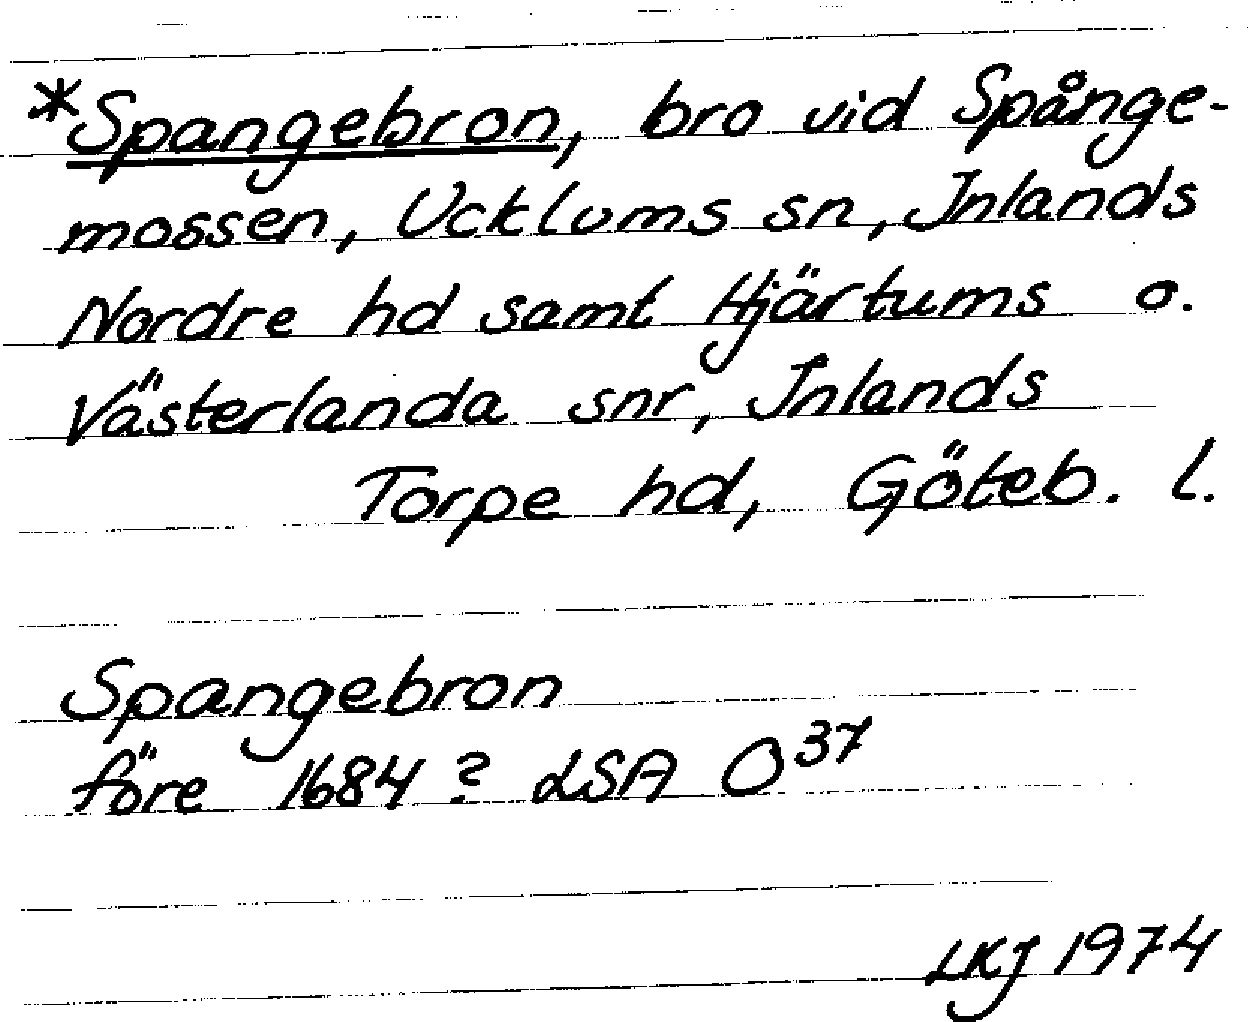 *Spangebron, bro vid Spånge-
mossen, Ucklums sn, Inlands
Nordre hd samt Hjärtums o.
Västerlanda snr, Inlands
Torpe hd, Göteb. l.
Spangebron
före 1684? LSA O³⁷
LKJ 1974